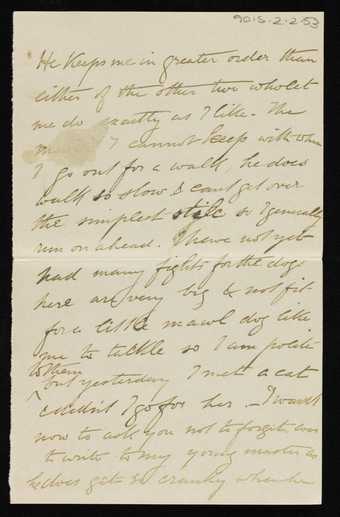 9015.2.2.53
He keeps me in greater order than
either of the other two who let
me do exactly as I like. The
I cannot keep with when
I go out for a walk, he does
walk so slow & cant get over
the simplest stile so I generally
run on ahead. I have not yet
had many fights for the dogs
here are very big & not fit
for a little mawl dog like
me to tackle so I am polite
to them
but yesterday I met a cat
couldn't I go for her – I want
now to ask you not to forget
to write to my young master as
he does get so cranky when he